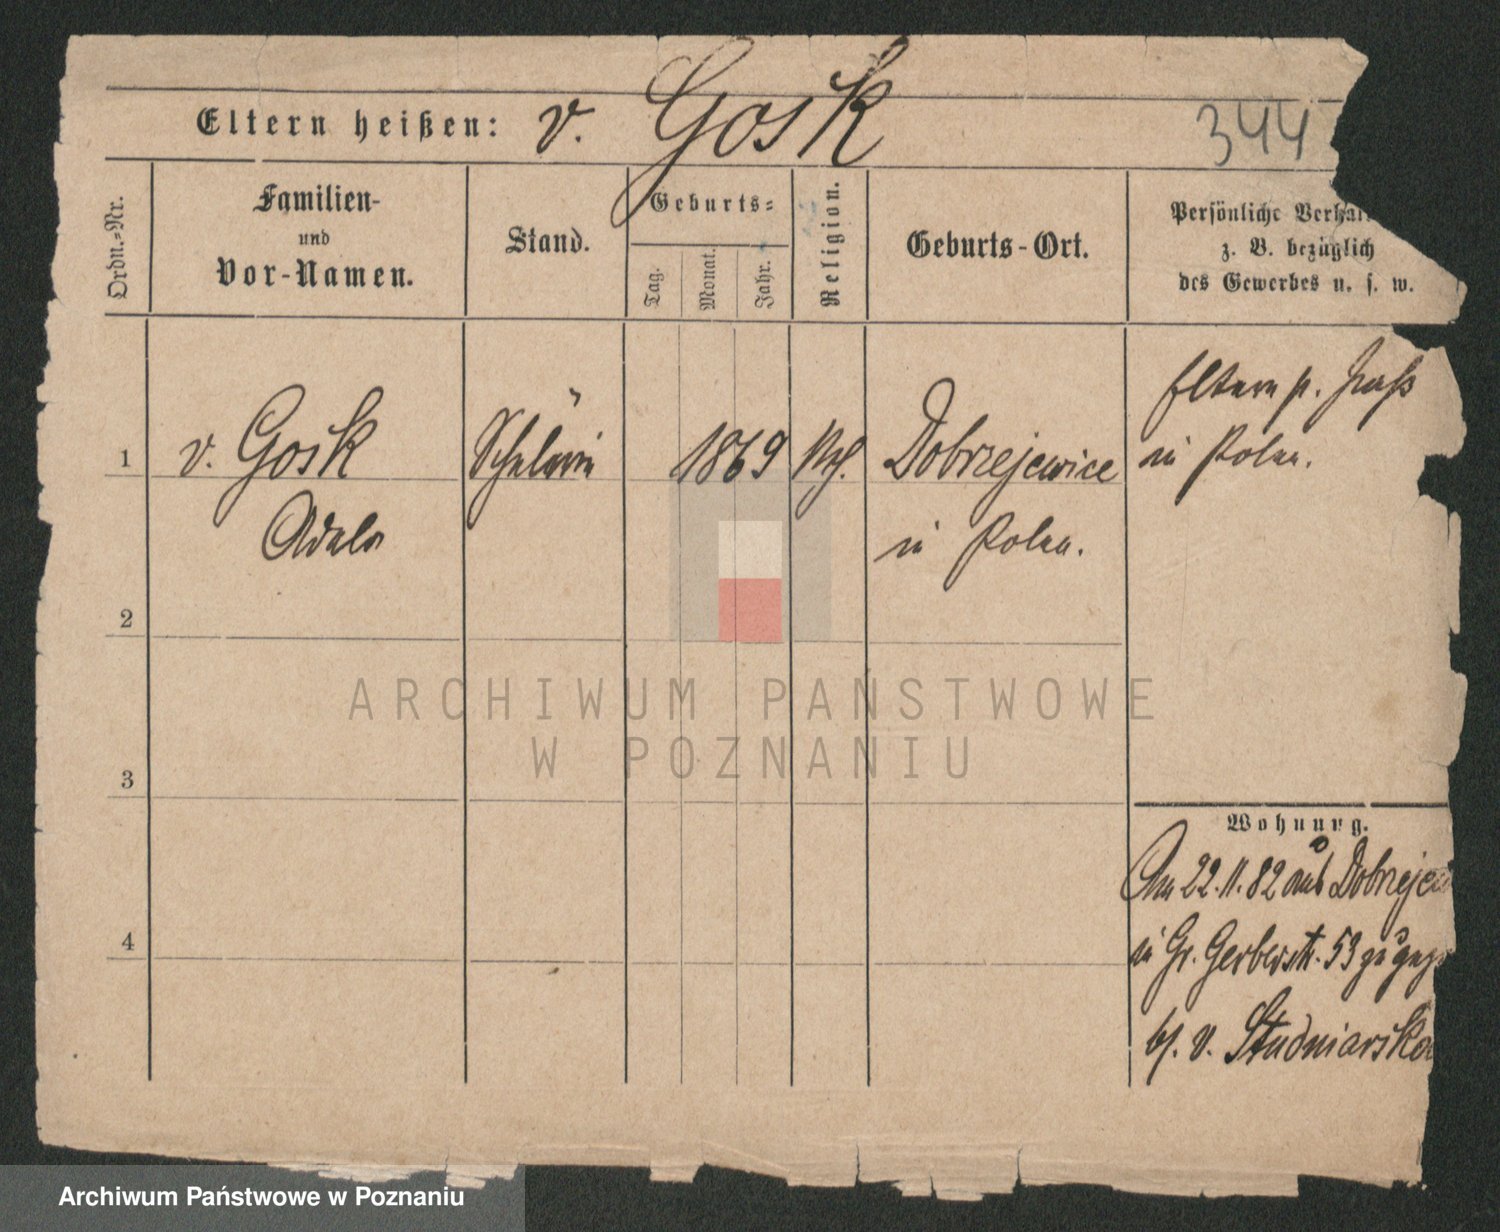 Eltern heißen: v. Gosk
344
Ordn.-Nr.
Familien-
und
Vor-Namen.
Stand.
Geburts-
Tag.
Monat.
Jahr.
Religion.
Geburts-Ort.
Persönliche Verhäl
z. B. bezüglich
des Gewerbes u. s. w.
1
v. Gosk
Adela
Schülerin
1869
Dobrzejewice
in Polen.
Eltern
in Polen.
2
3
4
Wohnung.
Am 22.11.82 aus Dobrzejew
in Gr. Gerberstr. 53 zugezo
bei v. Studniarska
ARCHIWUM PAŃSTWOWE
W POZNANIU
Archiwum Państwowe w Poznaniu